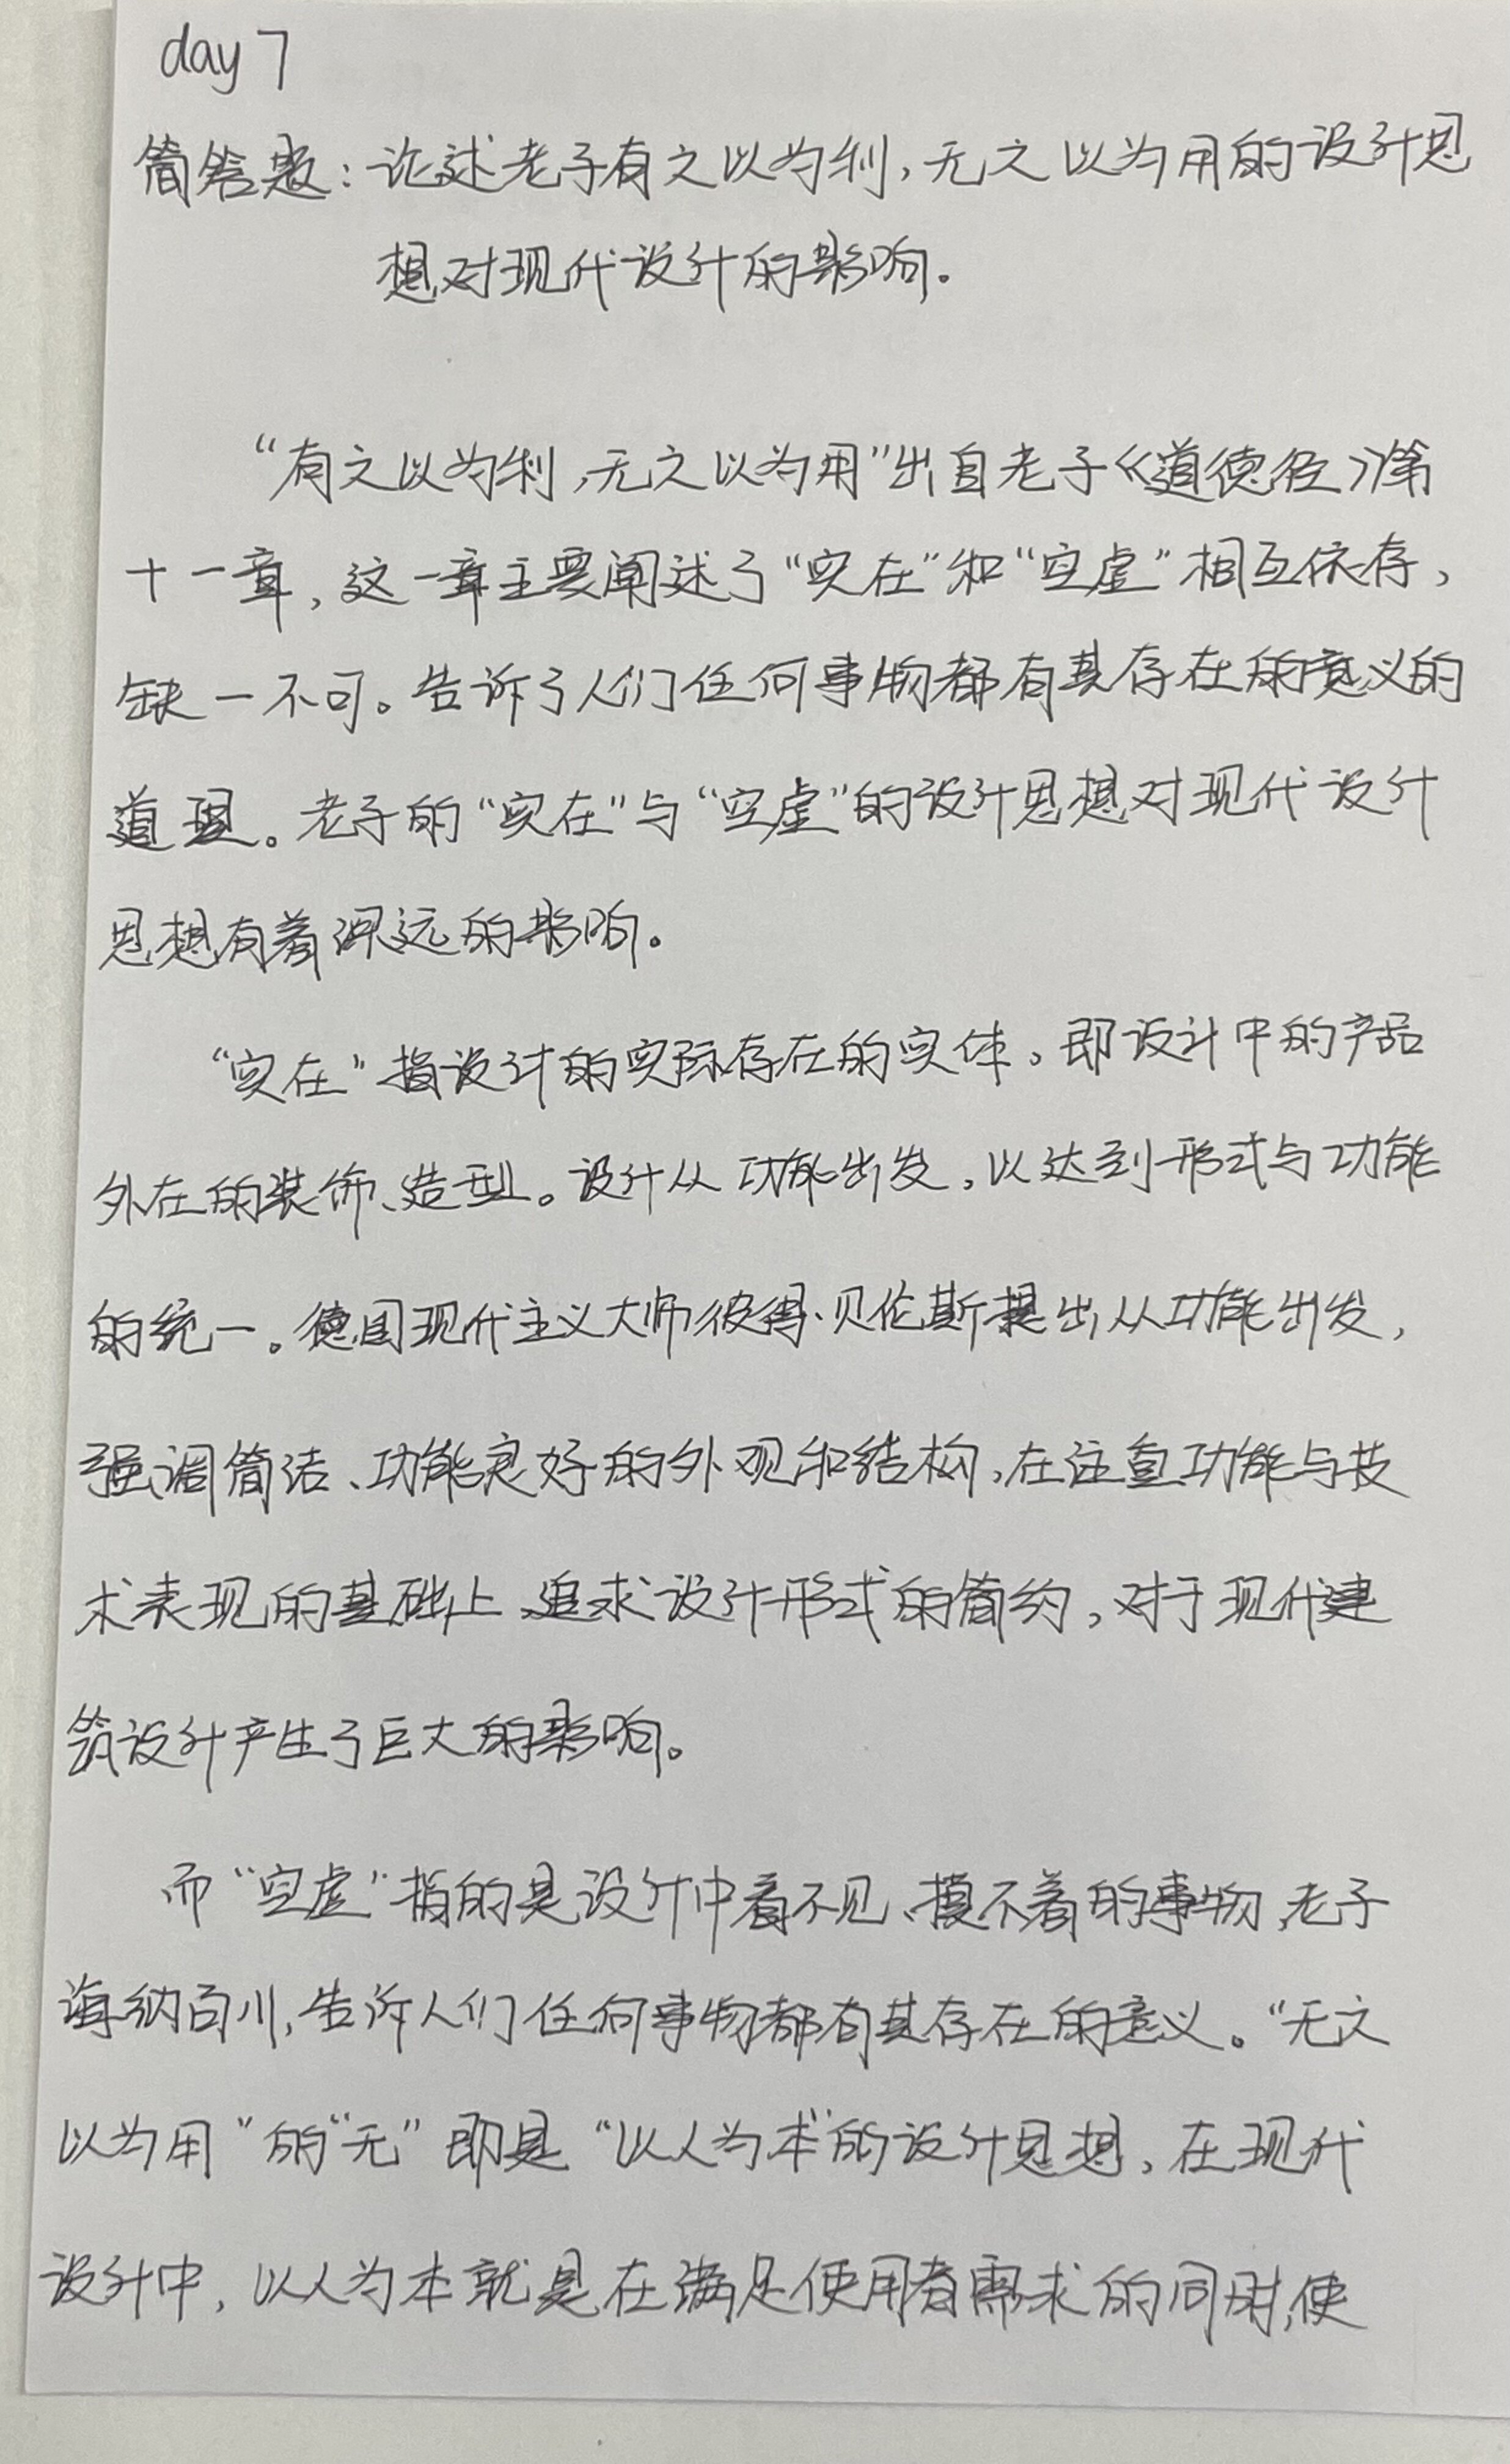 day 7
简答题：论述老子有之以为利，无之以为用的设计思
想对现代设计的影响.
“有之以为利，无之以为用”出自老子《道德经》第
十一章，这一章主要阐述了“实在”和“空虚”相互依存，
缺一不可。告诉了人们任何事物都有其存在的意义的
道理。老子的“实在”与“空虚”的设计思想对现代设计
思想有着深远的影响。
“实在”指设计的实际存在的实体。即设计中的产品
外在的装饰、造型。设计从功能出发，以达到形式与功能
的统一。德国现代主义大师彼得·贝伦斯提出从功能出发，
强调简洁、功能良好的外观和结构，在注重功能与技
术表现的基础上，追求设计形式的简约，对于现代建
筑设计产生了巨大的影响。
而“空虚”指的是设计中看不见、摸不着的事物，老子
海纳百川，告诉人们任何事物都有其存在的意义。“无之
以为用”的“无”即是“以人为本”的设计思想，在现代
设计中，以人为本就是在满足使用者需求的同时，使